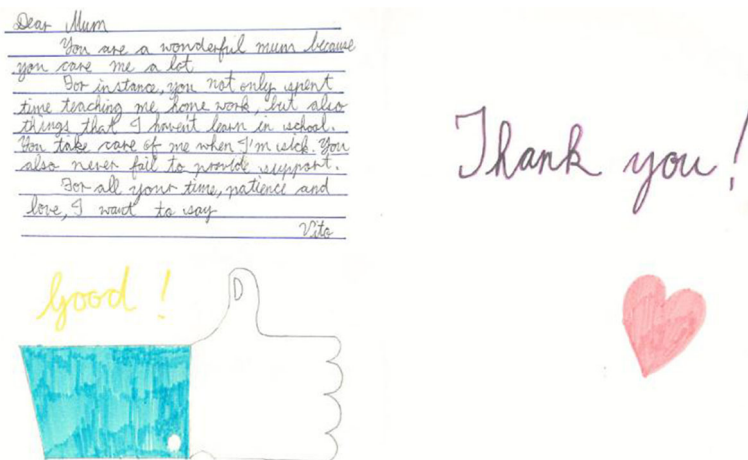 Dear Mum
You are a wonderful mum because
you care me a lot
For instance, you not only spent
time teaching me home work, but also
things that I haven't learn in school.
You take care of me when I'm sick. You
also never fail to provide support.
For all your time, patience and
love, I want to say
Vito
Thank you!
Good!